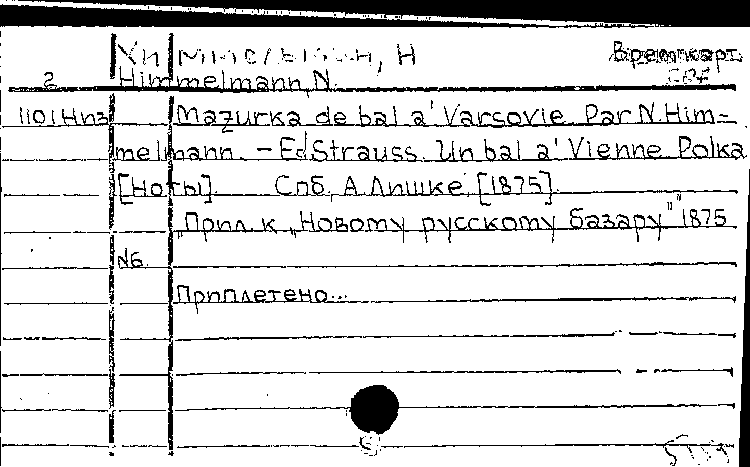 Химмельман, Н Времн. карт.
2 Himmelmann, N.
1101 Нпз Mazurka de bal a' Varsovie. Par N. Him-
melmann. – Ed Strauss. Un bal a' Vienne. Polka
[Ноты]. Спб, А. Лишке, [1875].
"Прил. к „Новому русскому базару" " 1875
№6.
Приплетено...